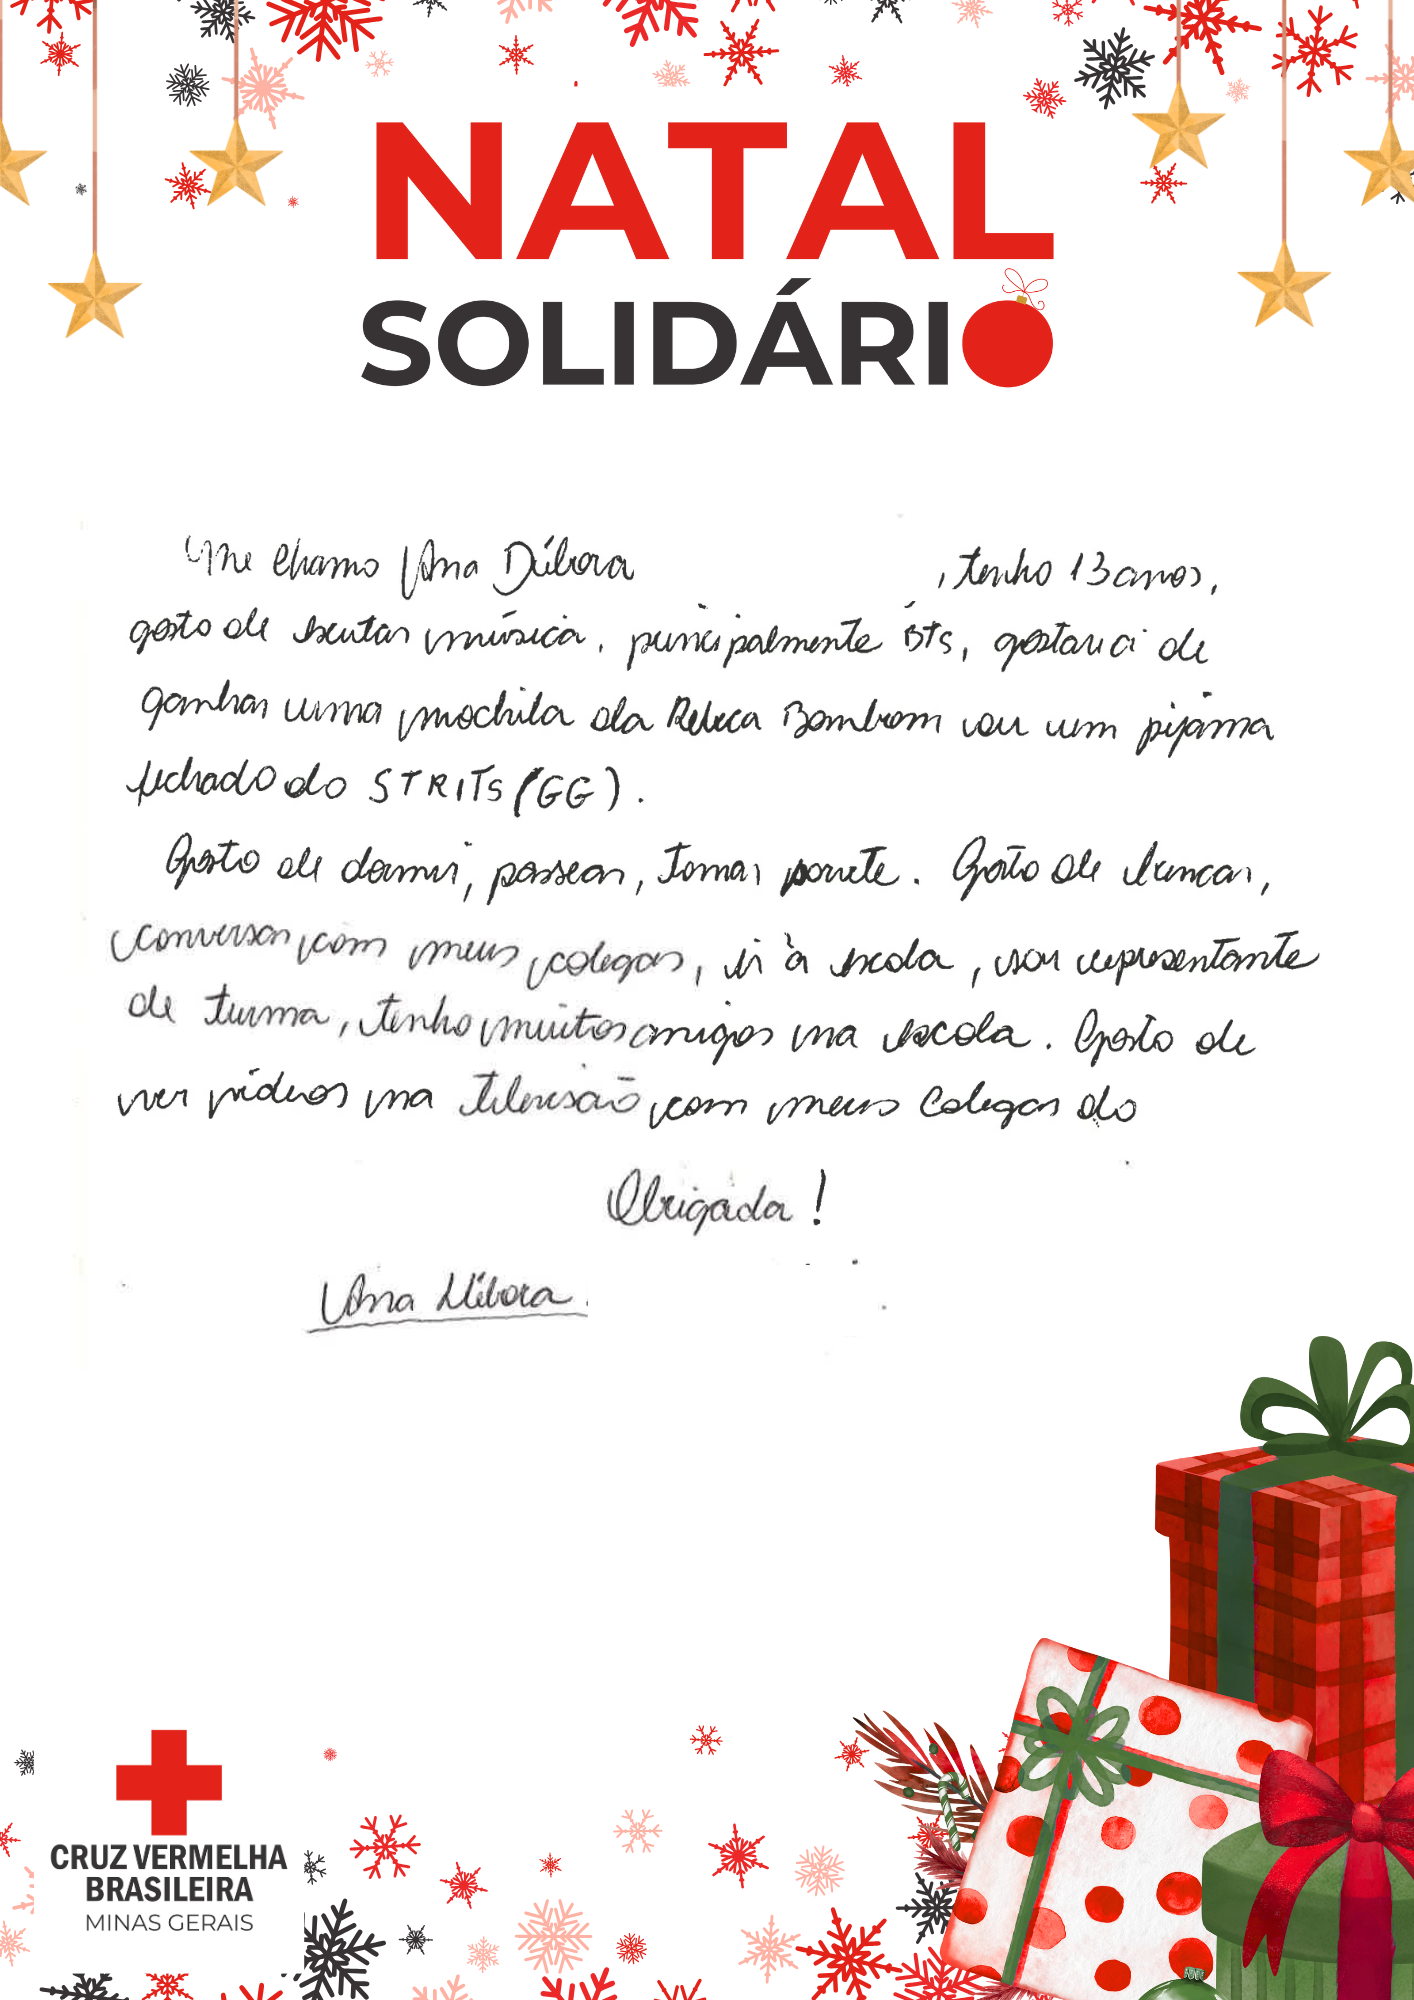 NATAL
SOLIDÁRIO
Me chamo Ana Débora , tenho 13 anos,
gosto de escutar música, principalmente BTS, gostaria de
ganhar uma mochila da Rebeca Bombom ou um pijama
fechado do STRITS (GG).
Gosto de dormir, passear, tomar sorvete. Gosto de brincar,
conversar com meus colegas, ir à escola, sou representante
de turma, tenho muitos amigos na escola. Gosto de
ver vídeos na televisão com meus colegas do
Obrigada!
Ana Débora.
CRUZ VERMELHA
BRASILEIRA
MINAS GERAIS